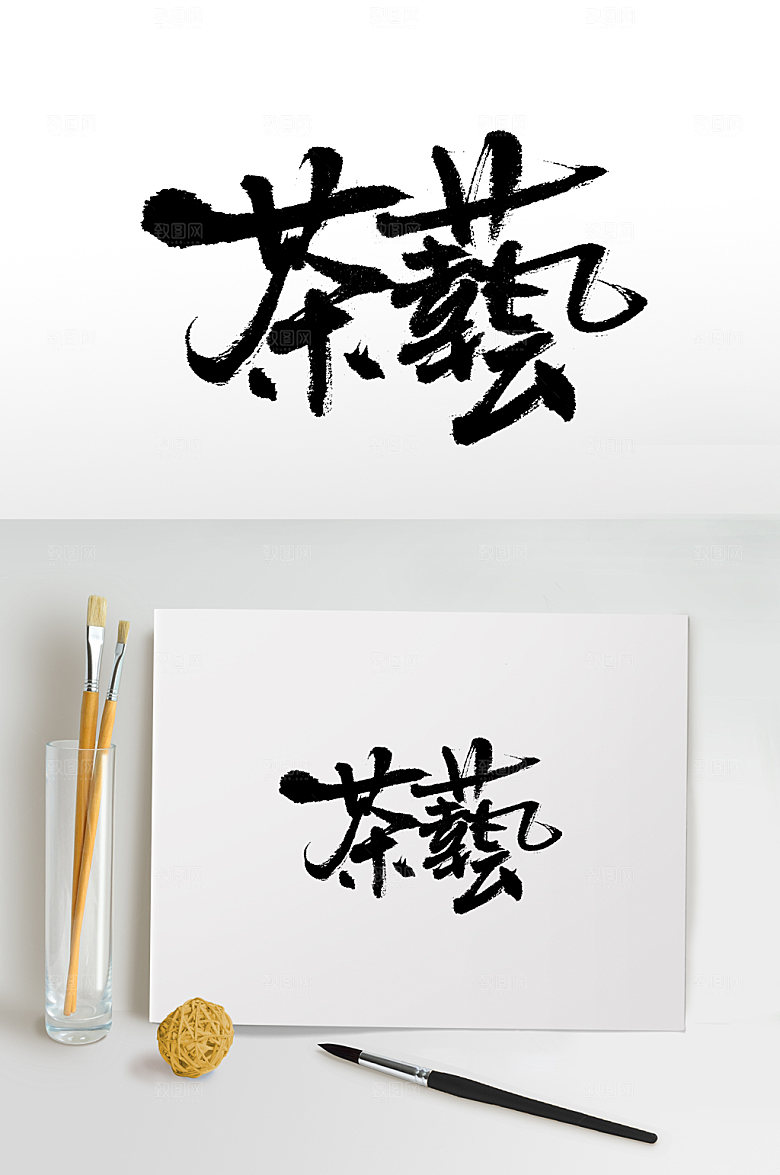 茶藝
茶藝